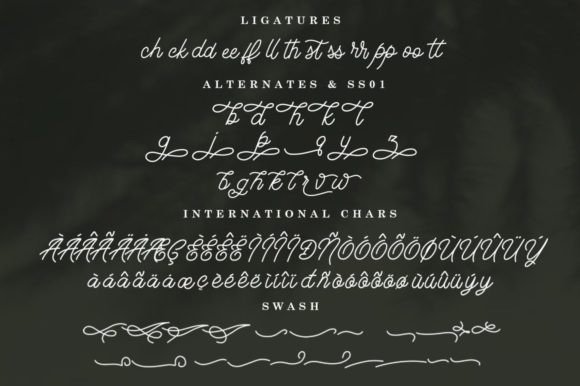 LIGATURES
ch ck dd ee ff ll th st ss rr pp oo tt
ALTERNATES & SS01
b d h k l
g j p q y z
b g h k l r v w
INTERNATIONAL CHARS
ÀÁÂÃÄÅÆÇÈÉÊËÌÍÎÏÐÑÒÓÔÕÖØÙÚÛÜÝ
àáâãäåæçèéêëìíîï đñòóôõöøùúûüýÿ
SWASH